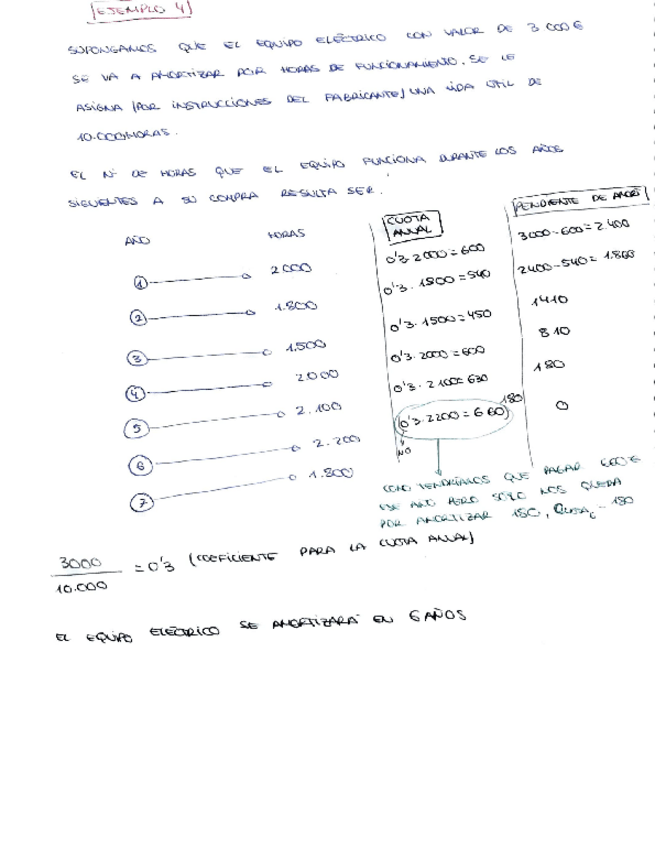 EJEMPLO 4
SUPONGAMOS QUE EL EQUIPO ELÉCTRICO CON VALOR DE 3 000€
SE VA A AMORTIZAR POR HORAS DE FUNCIONAMIENTO. SE LE
ASIGNA (POR INSTRUCCIONES DEL FABRICANTE) UNA VIDA ÚTIL DE
10.000HORAS.
EL Nº DE HORAS QUE EL EQUIPO FUNCIONA DURANTE LOS AÑOS
SIGUIENTES A SU COMPRA RESULTA SER.
AÑO HORAS CUOTA ANUAL PENDIENTE DE AMORT
1 2000 0'3·2000=600 3000-600=2.400
2 1.800 0'3·1800=540 2400-540=1.860
3 1.500 0'3·1500=450 1410
4 2000 0'3·2000=600 810
5 2.100 0'3·2100=630 180
6 2.200 0'3·2200=660 180 0
NO
7 1.800
COMO TENDRÍAMOS QUE PAGAR 660€
ESE AÑO PERO SOLO NOS QUEDA
POR AMORTIZAR 180, = 180
3000 / 10.000 = 0'3 (COEFICIENTE PARA LA CUOTA ANUAL)
EL EQUIPO ELÉCTRICO SE AMORTIZARÁ EN 6 AÑOS